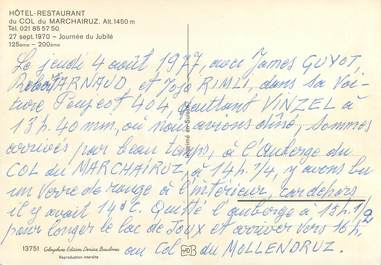 HÔTEL-RESTAURANT
du COL du MARCHAIRUZ. Alt. 1450 m
Tél. 021 85 57 50
27 sept. 1970 – Journée du Jubilé
125ème – 200ème
Le jeudi 4 août 1977, avec James GUYOT,
ARNAUD et Jojo RIMLI, dans sa voi-
ture Peugeot 404, quittant VINZEL à
13h.40 min, où nous avions dîné, sommes
arrivés par beau temps, à l'auberge du
COL du MARCHAIRUZ, à 14h.1/4, y avons bu
un verre de rouge à l'intérieur, car dehors
il y avait 14°C. Quitté l'auberge à 15h.1/2
pour longer le lac de Joux et arriver vers 16h.
au Col du MOLLENDRUZ.
13751
Reproduction interdite